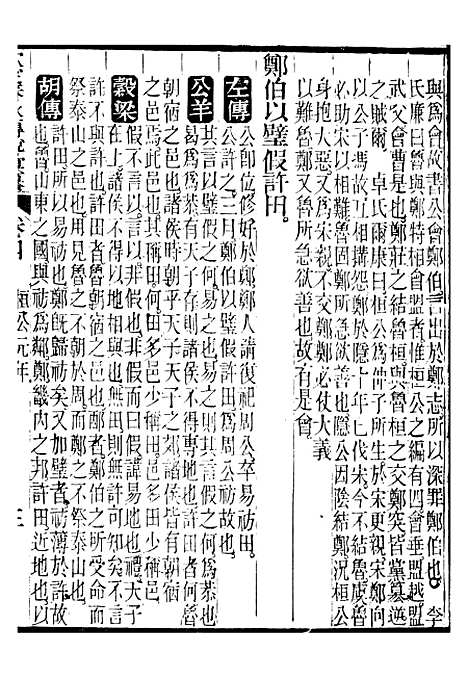 與爲會故書公會鄭伯言出於鄭志所以深罪鄭伯也李
氏廉曰魯與鄭特相會盟者桓公之編有四會垂盟越盟
武父會曹是也鄭莊之結魯桓與魯桓之交鄭突皆黨篡逆
之賊爾卓氏爾康曰桓公爲仲子所生於宋爲出鄭向
以公子馮故互相搆怨鄭於隱十年已伐宋今不結魯
必助宋以報鄭是固鄭所急欲善也隱公因陰結鄭況桓公
身抱大惡又爲宋親不交鄭鄭必仗大義
以難魯鄭又魯所急欲善也故有是會
鄭伯以璧假許田。
左傳 公卽位修好於鄭鄭人請復祀周公卒易祊田。
公許之三月鄭伯以璧假許田爲周公祊故也。
公羊 其言以璧假之何。易之也易之則其言假之何爲恭也
曷爲爲恭有天子存則諸侯不得專地也許田者何魯
朝宿之邑也諸侯時朝乎天子天子之郊諸侯皆有朝宿
之邑焉此邑也其稱田何。田多邑少稱田。邑多田少稱邑。
穀梁 假不言以。言以非假也非假而曰假諱易地也禮天子
在上諸侯不得以地相與也無田則無許可知矣不言
許不與許也許田者魯朝宿之邑也邴者。鄭伯之所受命而
祭泰山之邑也用見魯之不朝於周。而鄭之不祭泰山也。
胡傳 許田所以易祊也鄭旣歸祊矣又加璧者。祊薄於許故
也魯山東之國與祊爲鄰鄭畿內之邦許田。近地也以
卷四 桓公元年 三